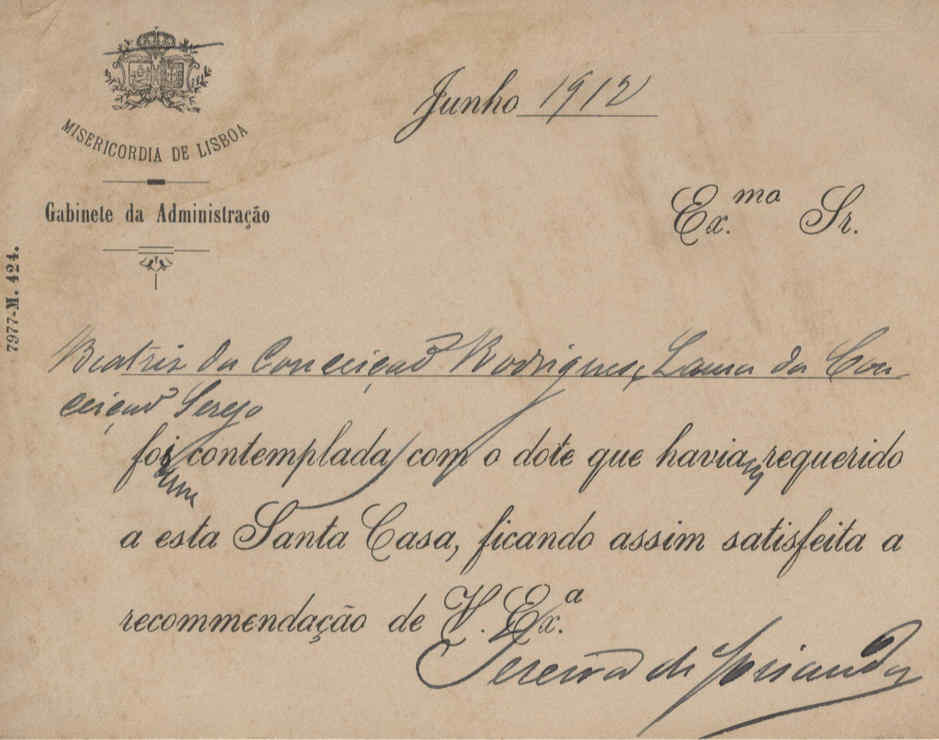 MISERICORDIA DE LISBOA
Gabinete da Administração
7977-M. 424.
Junho 1912
Ex.mo Sr.
Beatriz da Conceição Rodrigues, Laura da Con
ceição Serejo
foi contemplada com o dote que haviam requerido
a esta Santa Casa, ficando assim satisfeita a
recommendação de V. Ex.a
Pereira de Miranda